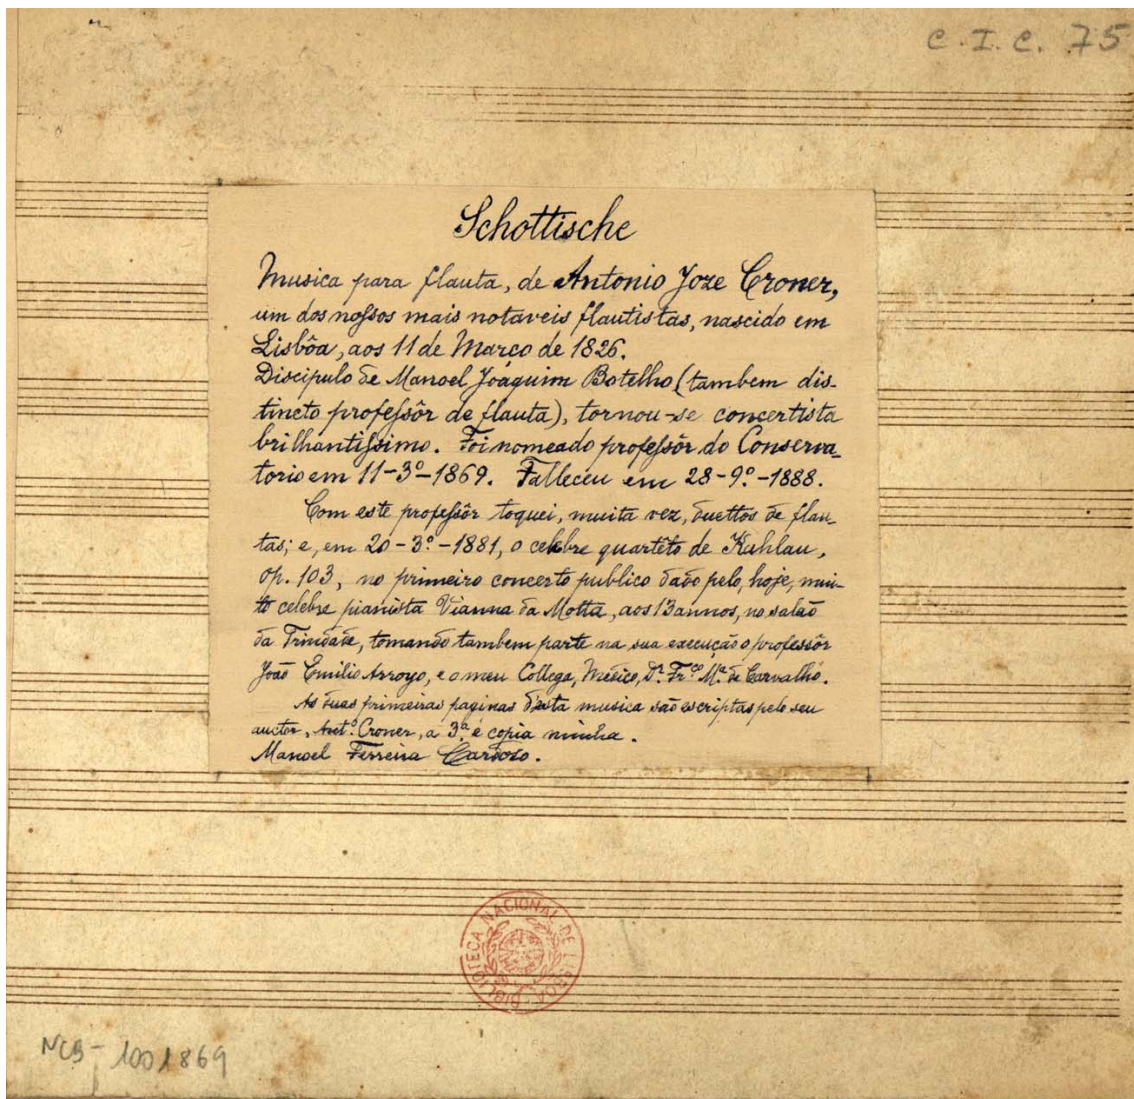 C.I.C. 75
Schottische
Musica para flauta, de Antonio Joze Croner,
um dos nossos mais notaveis flautistas, nascido em
Lisbôa, aos 11 de Março de 1826.
Discipulo de Manoel Joaquim Botelho (tambem dis-
tincto professôr de flauta), tornou-se concertista
brilhantissimo. Foi nomeado professôr do Conserva-
torio em 11-3º-1869. Falleceu em 28-9º-1888.
Com este professôr toquei, muita vez, duettos de flau-
tas; e, em 20-3º-1881, o celebre quartêto de Kuhlau,
op. 103, no primeiro concerto publico dado pelo, hoje, mui-
to celebre pianista Vianna da Motta, aos 13 annos, no salão
da Trindade, tomando tambem parte na sua execução o professôr
João Emilio Arroyo, e o meu Collega, Medico, Dr. Frco. Mª. de Carvalho.
As duas primeiras paginas d'esta musica são escriptas pelo seu
auctor, Antº. Croner, a 3ª. é copia minha.
Manoel Ferreira Cardoso.
BIBLIOTECA NACIONAL DE LISBOA
NCB-1001869